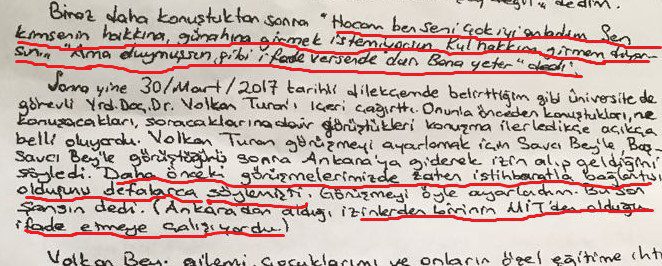 dedim.
Biraz daha konuştuktan sonra "Hocam ben seni çok iyi anladım Sen
kimsenin hakkına, günahına girmek istemiyorsun Kul hakkına girmem diyor-
sun. "Ama duymuşsun gibi ifade versende Bana yeter" dedi.
Sonra yine 30/Mart/2017 tarihli dilekçemde belirttiğim gibi üniversitede
görevli Yrd.Doç.Dr. Volkan Turan'ı içeri çağırttı. Onunla önceden konuştukları, ne
konuşacakları, soracaklarına dair görüştükleri konuşma ilerledikçe açıkça
belli oluyordu. Volkan Turan görüşmeyi ayarlamak için Savcı Bey'le, Baş-
Savcı Bey'le görüştüğünü sonra Ankara'ya giderek izin alıp geldiğini
söyledi. Daha önceki görüşmelerimizde zaten istihbaratla bağlantısı
olduğunu defalarca söylemişti. Görüşmeyi öyle ayarladım. Bu son
şansın dedi. (Ankara'dan aldığı izinlerden birinin MİT'den olduğu
ifade etmeye çalışıyordu.)
Volkan Bey, ailemi, çocuklarımı ve onların özel eğitime